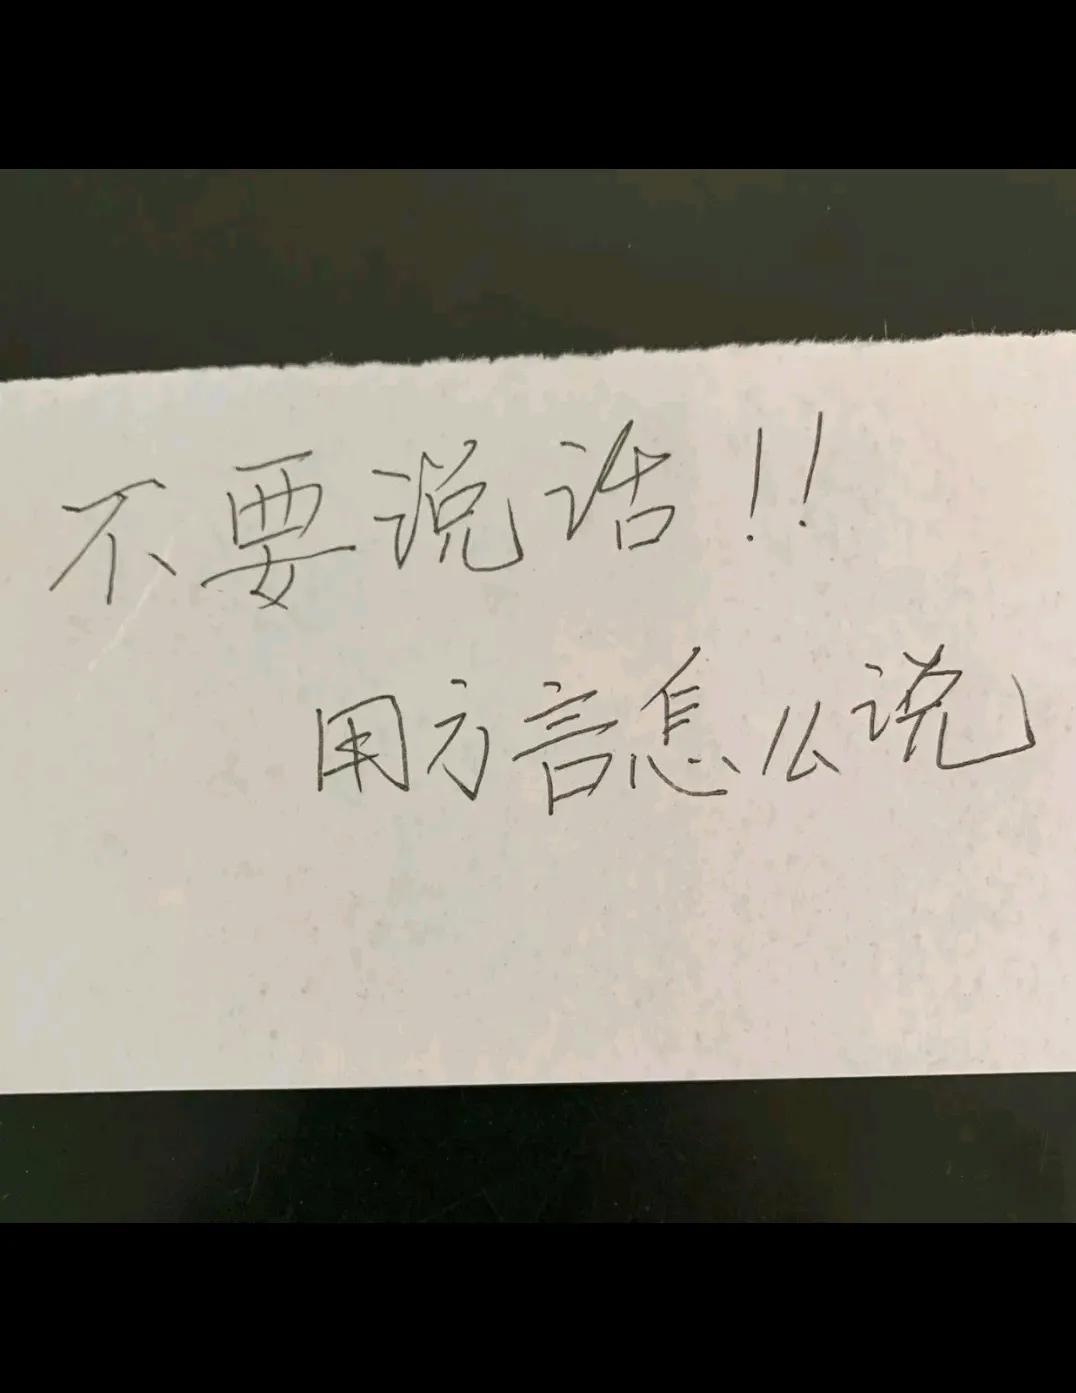 不要说话！！
用方言怎么说